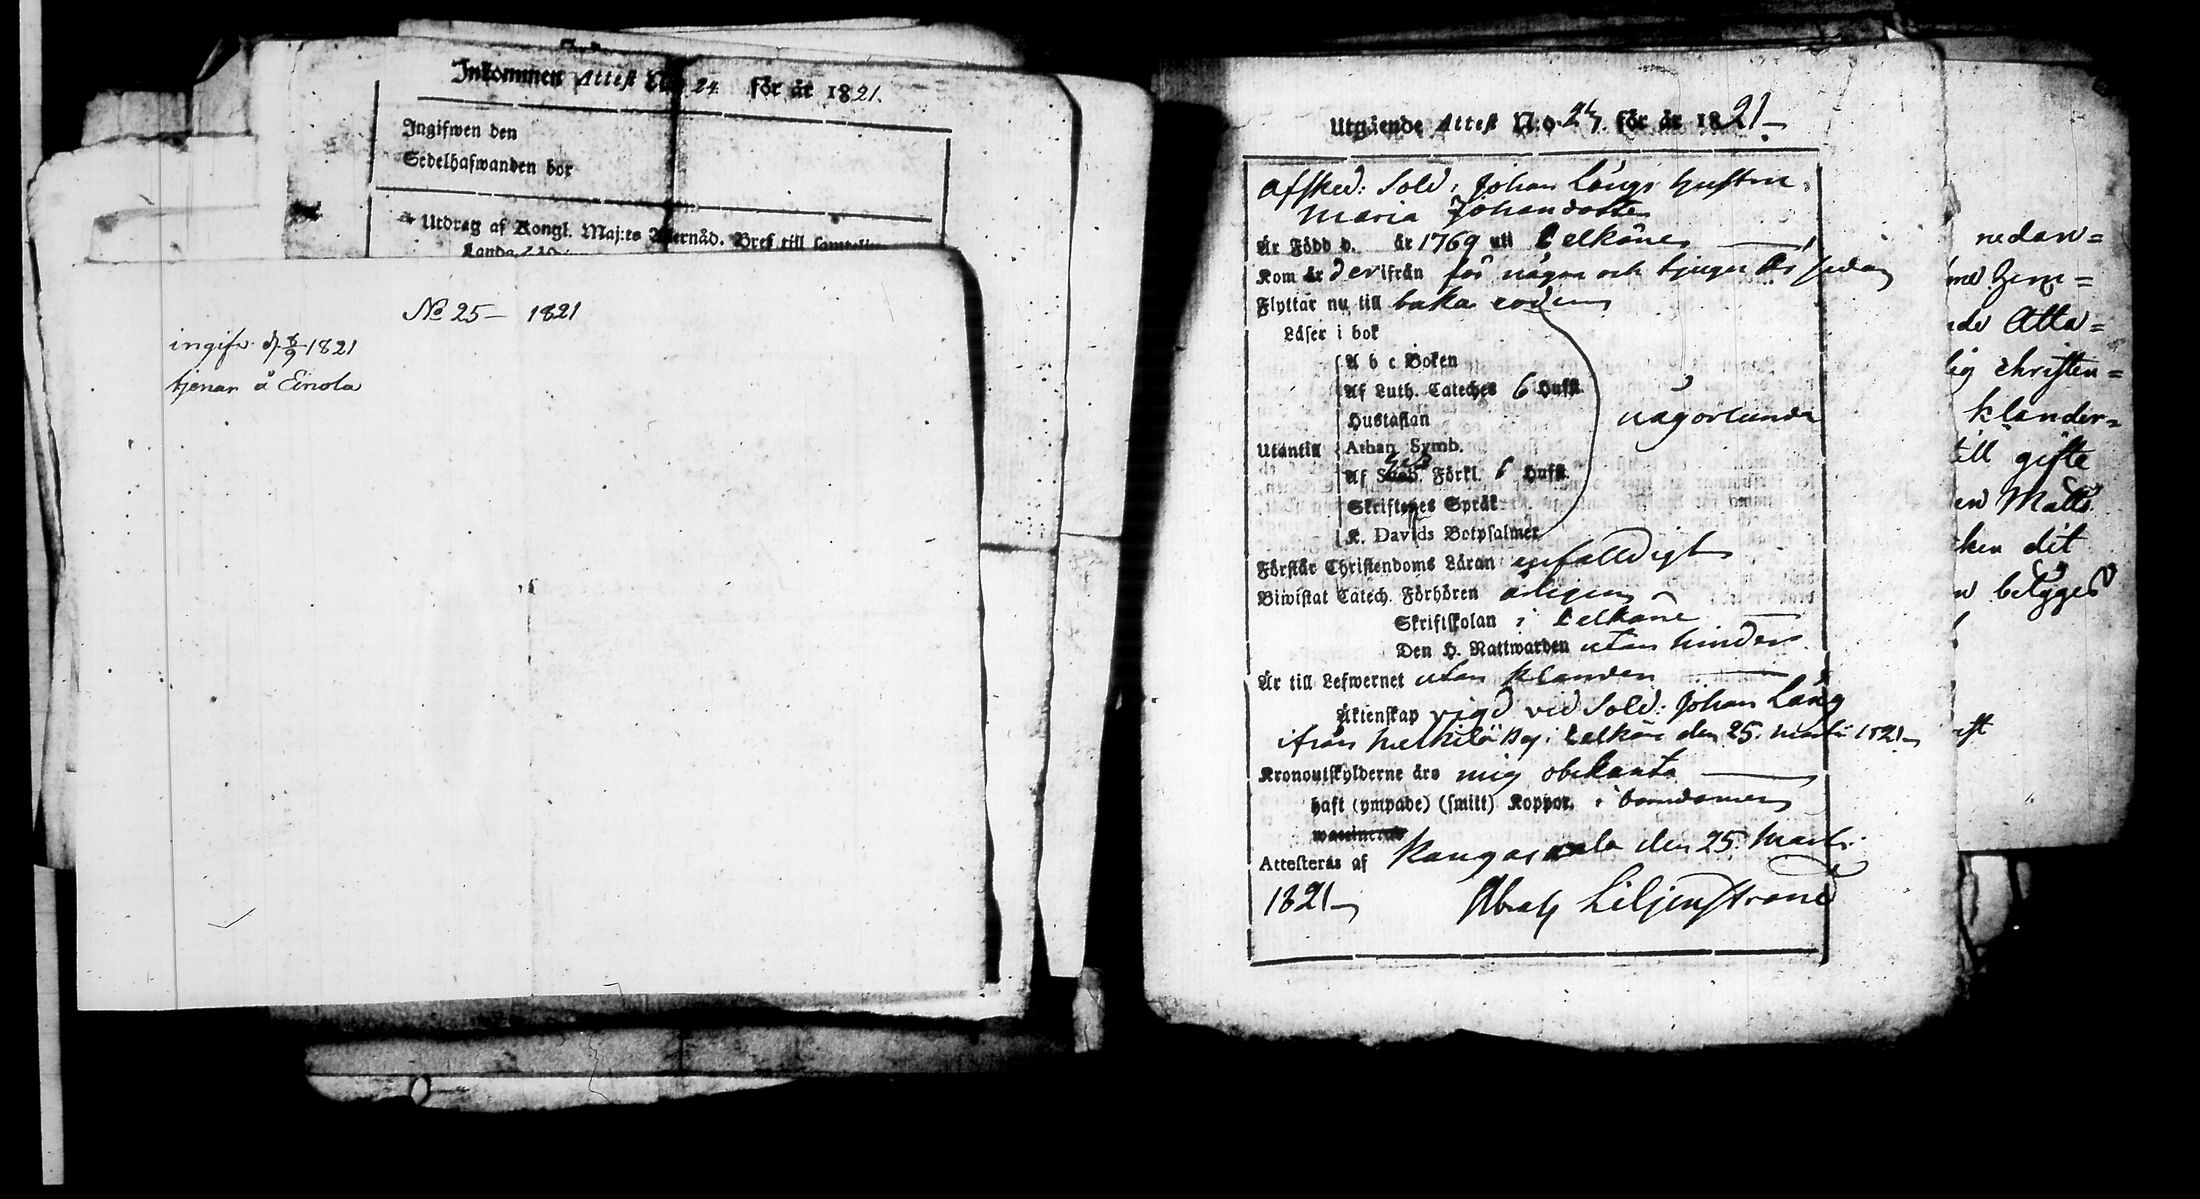 Inkommen Attest N:o 24 för år 1821.
Ingifwen den
Sedelhafwanden bor
Utdrag af Kongl. Maj:ts Allernåd. Bref till samtelige
No 25 — 1821
ingifv. d. 8/9 1821
tjenar å Einola
Utgående Attest N:o 27. för år 1821
Afsked: Sold: Johan Långs hustru
Maria Johansdotter
Är Född d. år 1769 uti Lelkäne
Kom är derifrån för några och tjugu år sedan
Flyttar nu till baka
Läser i bok
A b c Boken
Af Luth. Cateches 6 Hufst.
Hustaflan
någorlunda
Utantill Athan. Symb.
Af Förkl. 6 Hufst.
Skriftenes Språk
K. Davids Botpsalmer
Förstår Christendoms Läran enfaldigt
Biwistat Catech. Förhören årligen
Skriftskolan i Lelkäne
Den H. Nattwarden utan hinder
Är till Lefwernet utan klander
Äktenskap vigd vid Sold: Johan Lång
ifrån by i Lelkäne den 25. Martii 1821
Kronoutskylderne äro mig obekanta
haft (ympade) (smitt) Koppor. i barndomen
Attesteras af Kangasala den 25 Martii
1821 Abrah Liljenstrand
nedan=
Hem=
Atta=
lig christen=
klander=
till gifte
Matts
dit
betyges